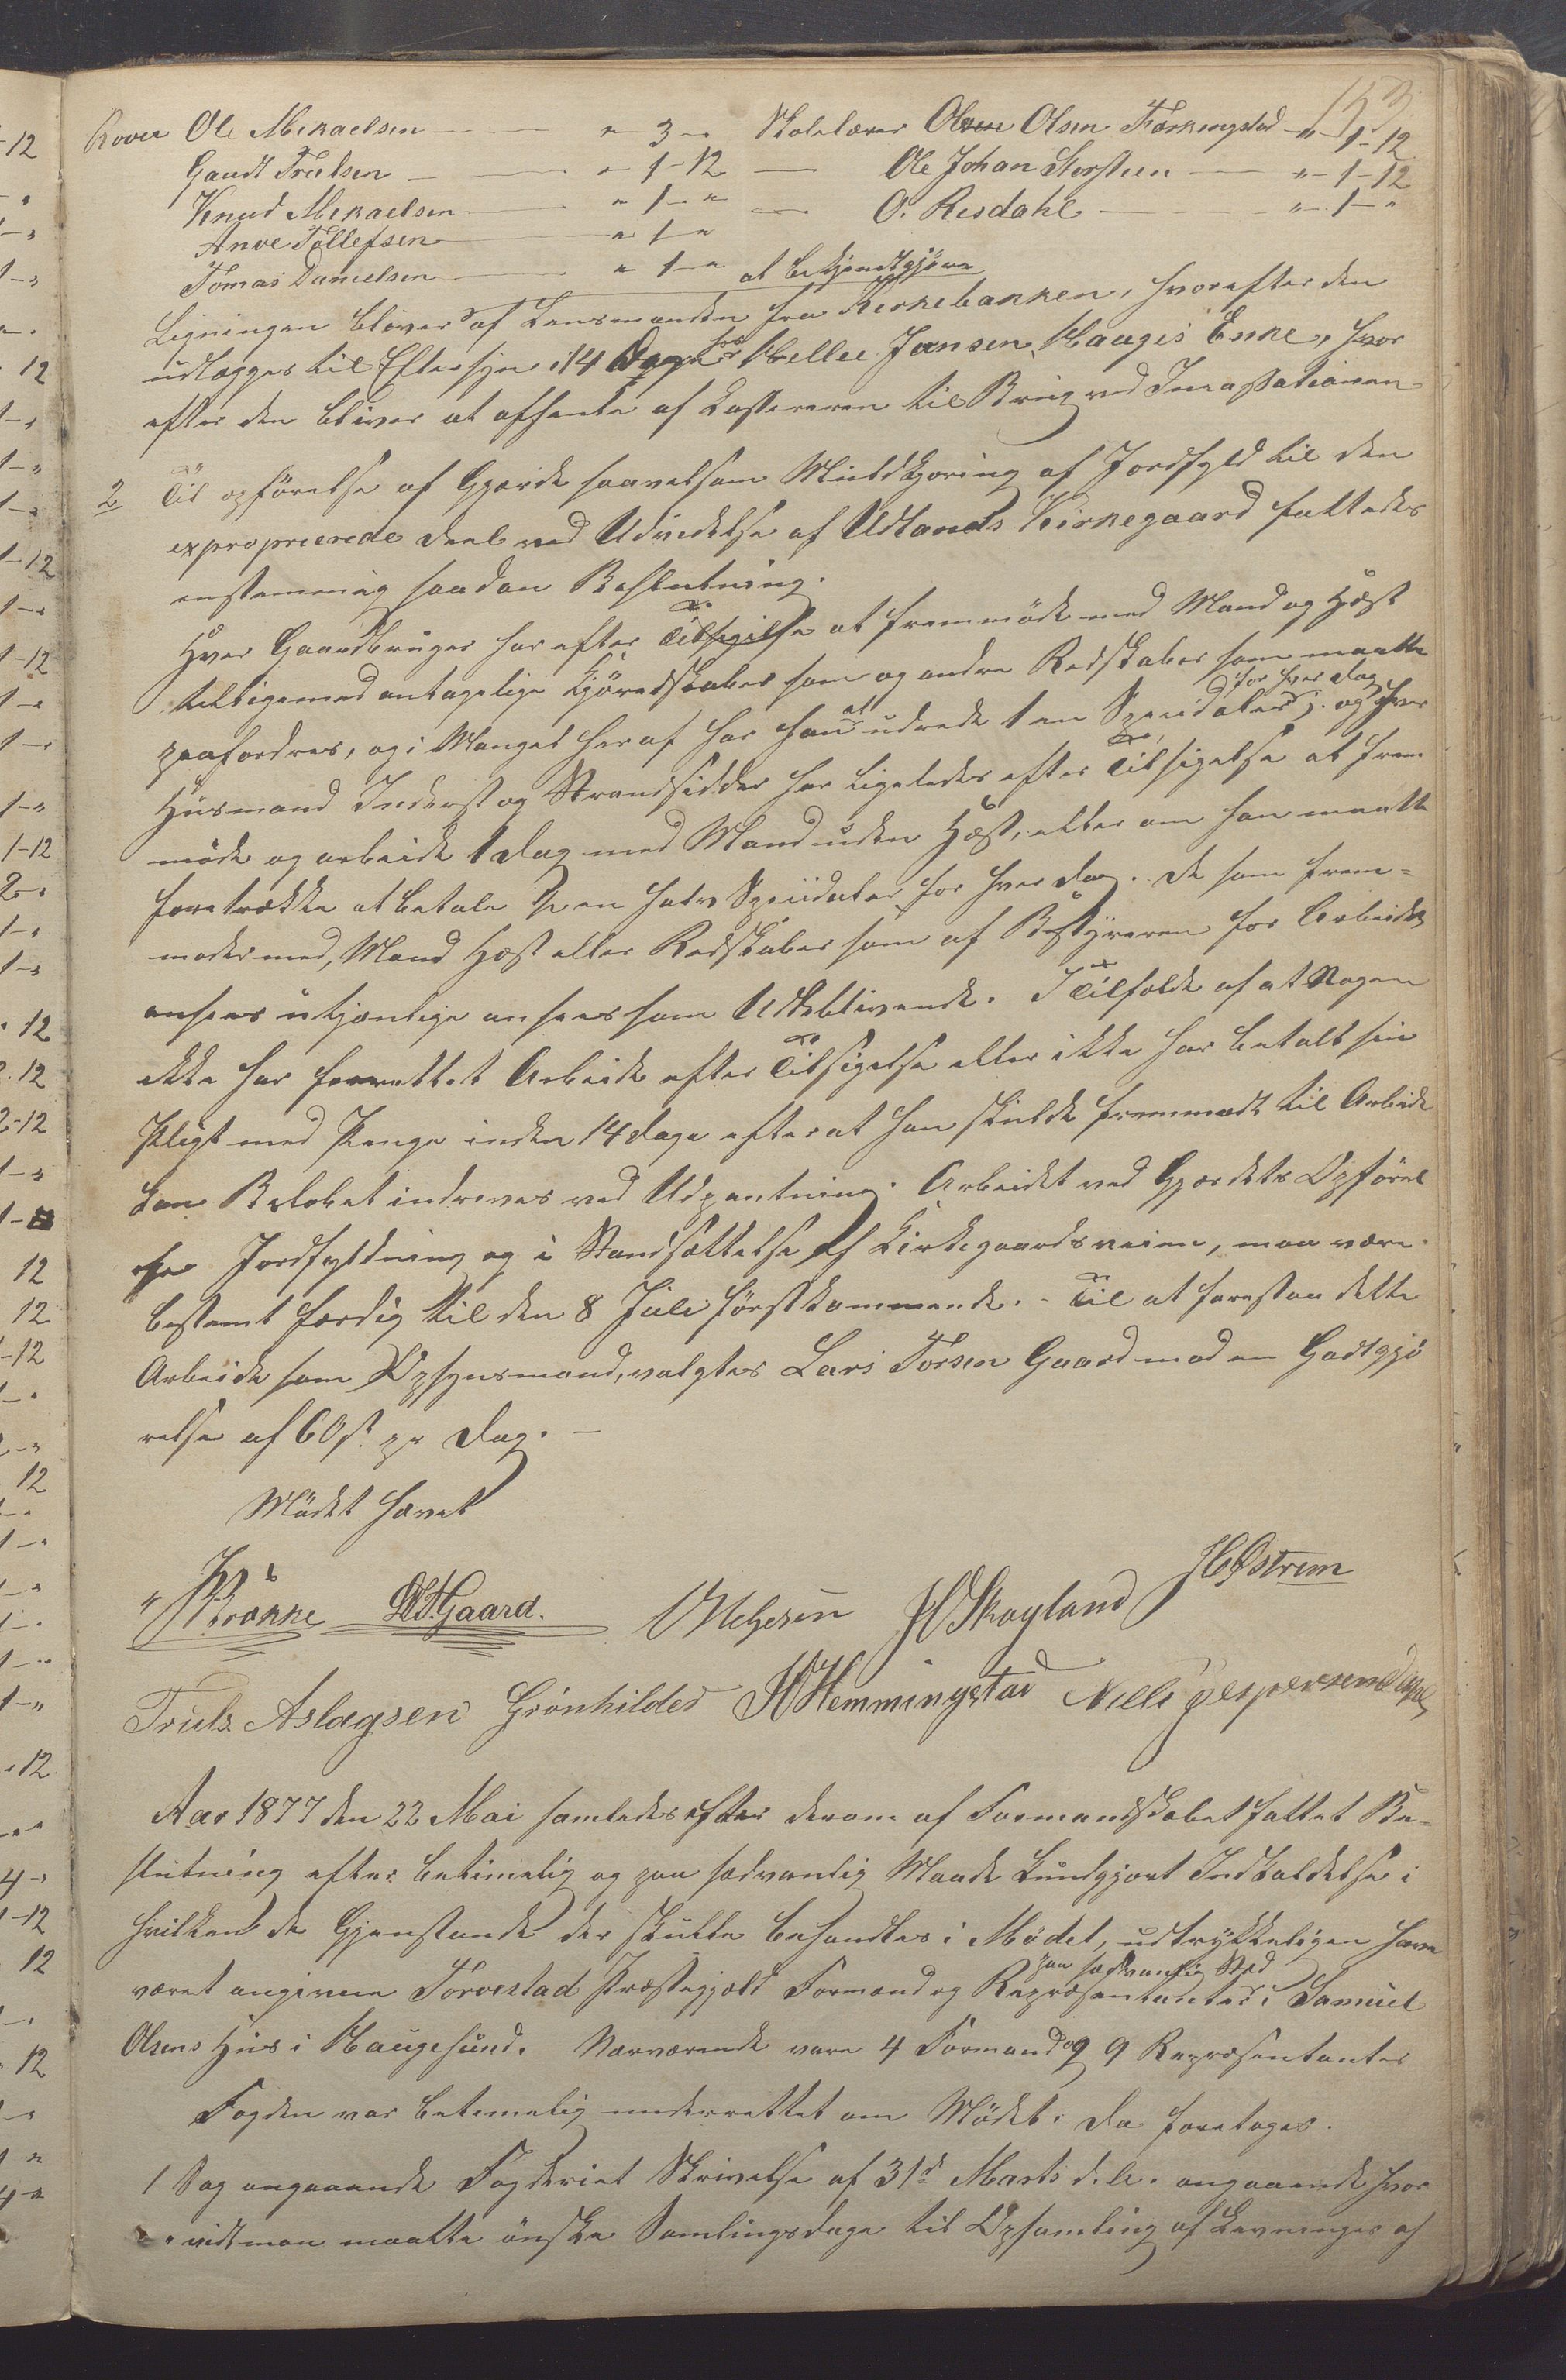 153
Røver Ole Mikaelsen — " 3 - Skolelærer Olsen Færkingstad - " 1-12
Gaudt Trulsen — " 1-12 — Ole Johan Storsteen — " 1-12
Knud Mikaelsen — " 1-" — O. Risdahl — " 1-"
Anve Tollefsen — " 1-"
Tomas Danielsen — " 1-"
at bekjendtgjøre
Ligningen bliver af Lensmanden fra Kirkebakken, hvorefter den
udlægges til Eftersyn i 14 Dage hos Helle Jansen Hauges Enke, hvor
efter den bliver at afhente af Kassereren til Brug ved Incassationen
2 Til opførelse af Gjærde saavelsom Muldkjøring af Jordfyld til den
exproprierede Deel ved Udvidelse af Udlands Kirkegaard fattedes
enstemmig saadan Beslutning.
Hver Gaardbruger har efter Tilsigelse at fremmøde med Mand og Hest
tilligemed antagelige Kjøredskaber som og andre Redskaber som maatte
for hver Dag
paafordres, og i Mangel heraf har han at udrede 1 en Speciedaler; og hver
Husmand Inderst og Strandsidder har ligeledes efter Tilsigelse at frem
møde og arbeide 1 Dag med Mand uden Hest, eller om han maatte
foretrække at betale ½ en halv Speciedaler for hver Dag. De som frem=
møder med, Mand Hest eller Redskaber som af Bestyreren for Arbeidet
ansees utjenlige ansees som Udeblivende. I Tilfælde af at Nogen
ikke har forrettet Arbeide efter Tilsigelse eller ikke har betalt sin
Pligt med Penge inden 14 Dage efterat han skulde fremmødt til Arbeide
kan Beløbet inddrives ved Udpantning. Arbeidet ved Gjærdets Opførel
se Jordfyldning og i Standsættelse af Kirkegaardsveien, maa være
bestemt færdig til den 8 Juli førstkommende. - Til at forestaa dette
Arbeide som Opsynsmand, valgtes Lars Torsen Gaard mod en Godtgjø
relse af 60 ß pr Dag. —
Mødet hævet
Brække L.T. Gaard. Melhesen HO Skogland JC Østrem
Truls Aslagsen Grønhilder HO Hemmingstad Niels Jespersen
Aar 1877 den 22 Mai samledes efter derom af Formandskabet fattet Be=
slutning efter betimelig og paa sædvanlig Maade kundgjort Indkaldelse i
hvilken de Gjenstande der skulle behandles i Mødet, udtrykkeligen have
paa sædvanlig Sted
været angivne Torvestad Præstegjæld Formænd og Repræsentanter i Samuel
Olsens Hus i Haugesund. Nærværende vare 4 Formænd og 9 Repræsentanter
Fogden var betimelig underrettet om Mødet. Da foretoges.
1 Sag angaaende Fogderiet Skrivelse af 31d Marts d. A. angaaende hvor
vidt man maatte ønske Samlingsdage til Opsamling af Levninger af